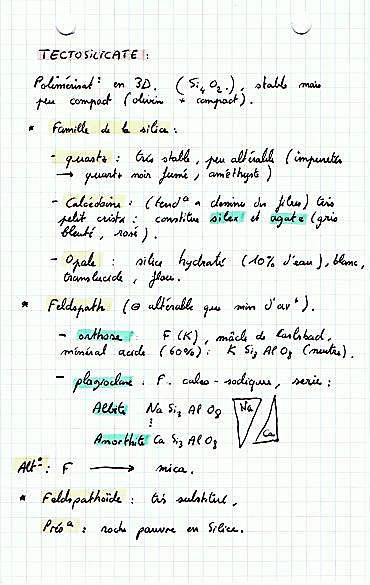 TECTOSILICATE :
Polimérisat° en 3D. (Si4 O2.), stable mais
peu compact (olivin + compact).
* Famille de la silice :
- quartz : très stable, peu altérable (impuretés
→ quartz noir fumé, améthyste)
- Calcédoine : (tend^a a donner du filon) très
petit cristx : constitue silex et agate (gris
bleuté, rosé).
- Opale : silice hydraté (10% d'eau), blanc,
translucide, fluo.
* Feldspath (⊖ altérable que min d'av^t).
- orthose : F (K), mâcle de Carlsbad,
minéral acide (60%) : K Si3 Al O8 (neutre).
- plagioclase : F. calco-sodiques, serie :
Albite Na Si3 Al O8
Na
Ca
Amorthite Ca Si3 Al O8
Alt° : F → mica.
* Feldspathoïde : très substitué,
Prés^a : roche pauvre en Silice.